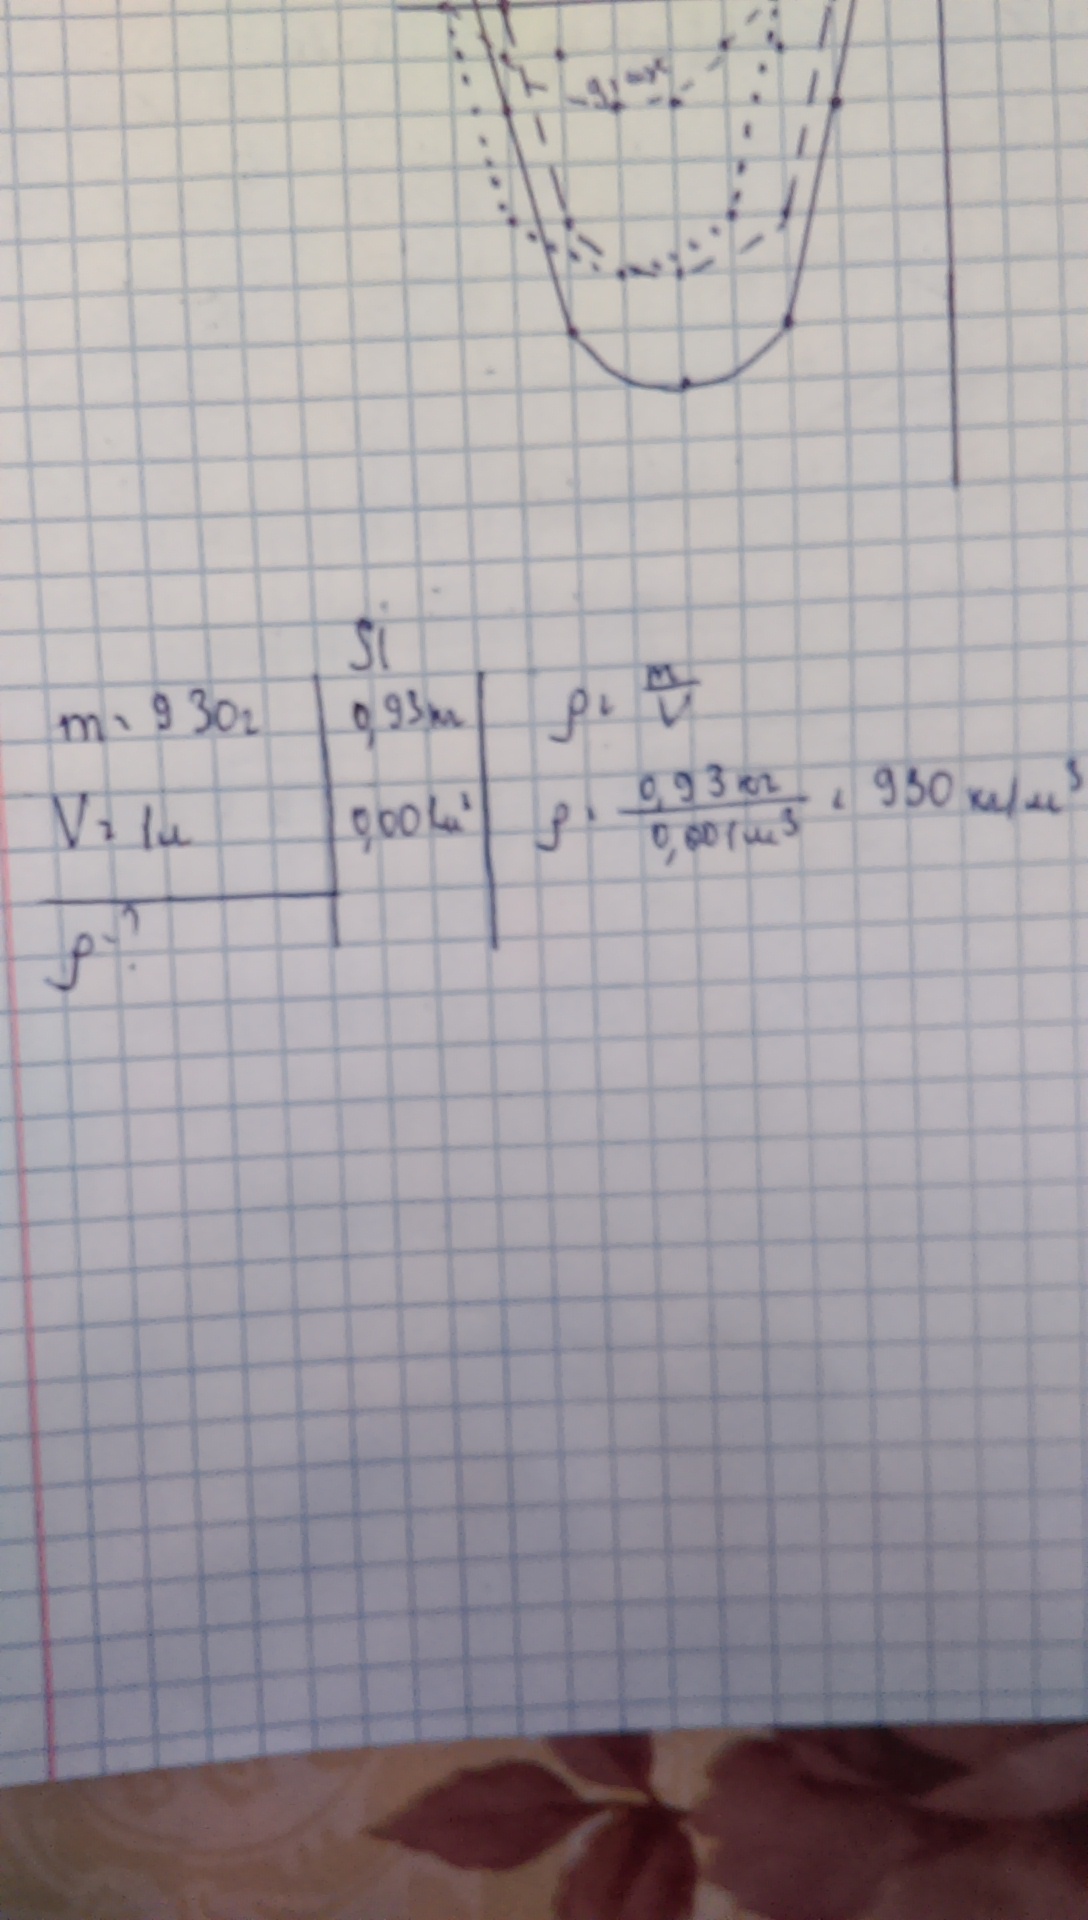 Si
m = 930г 0,93кг ρ = m/V
V = 1л 0,001м³ ρ = 0,93кг/0,001м³ = 930 кг/м³
ρ - ?